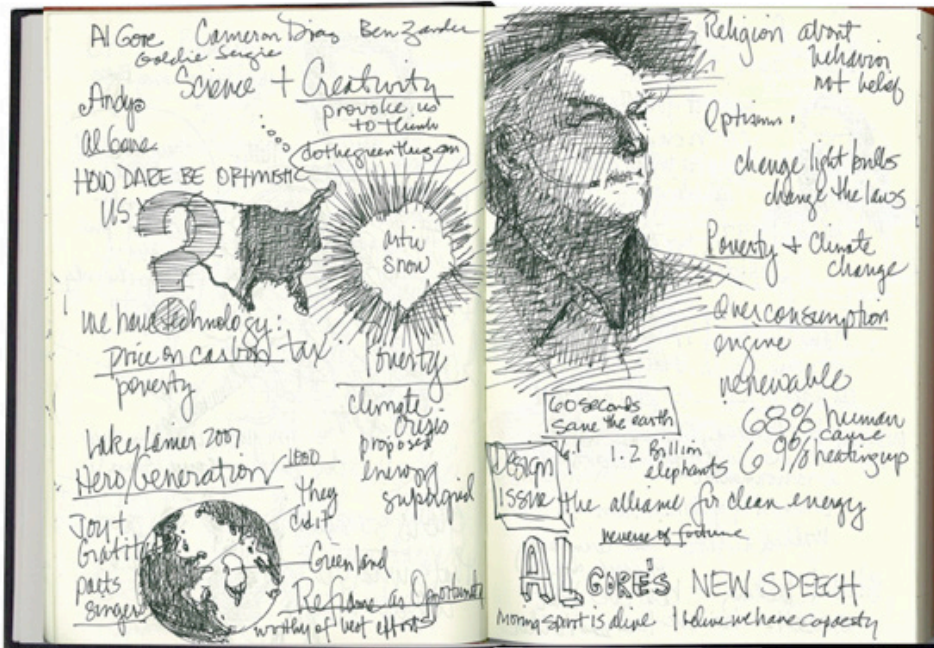 Al Gore Cameron Diaz Ben Zander
Goldie Sergie
Science + Creativity
provoke us
to think
Andy
al bane
dothegreenthing.com
HOW DARE BE OPTMISTIC
US
?
artic
snow
we have technology:
price on carbon tax
poverty
Poverty
climate
crisis
proposed
energy
Lake 2007
Hero/Generation
they
did it
Joy +
Gratit
poets
singer
Greenland
Reframe as Opportunity
worthy of best efforts
Religion about
behavior
not belief
Optism.
change light bulbs
change the laws
Poverty + Climate
change
Overconsumption
engine
renewable
60 seconds
Save the earth
68% human
cause
69% heating up
1.2 Billion
elephants
DESIGN
ISSUE
the alliance for clean energy
reverse of fortune
AL GORE'S NEW SPEECH
moring spirit is alive I believe we have capacity